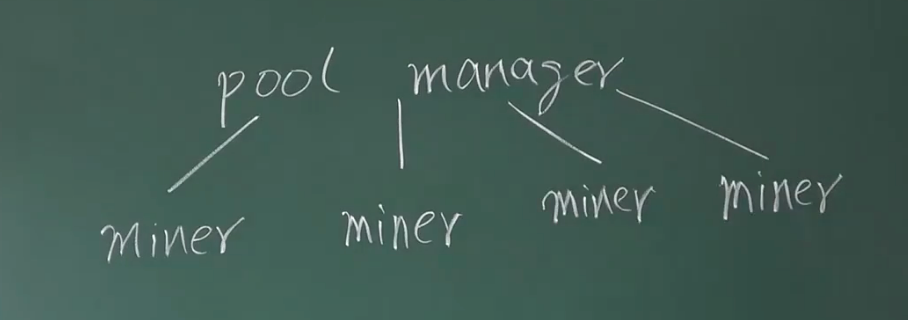 pool manager
miner miner miner miner